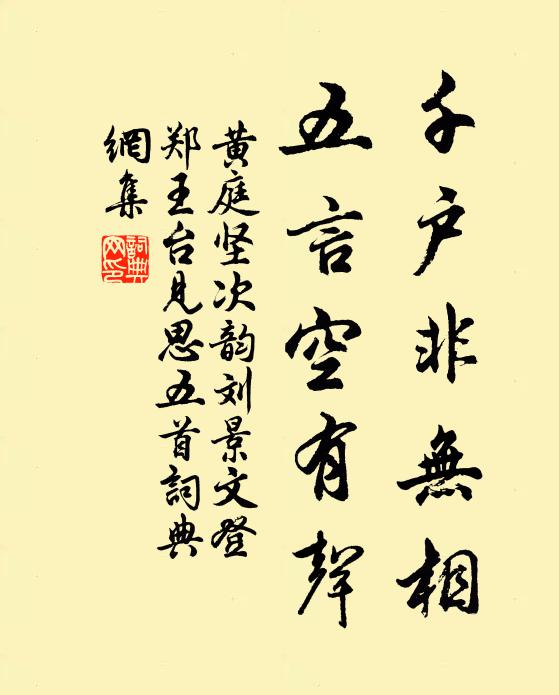 千户非無相
五言空有聲
黄庭坚次韵刘景文登
郑王台見思五首詞典
網集
詞典
网印